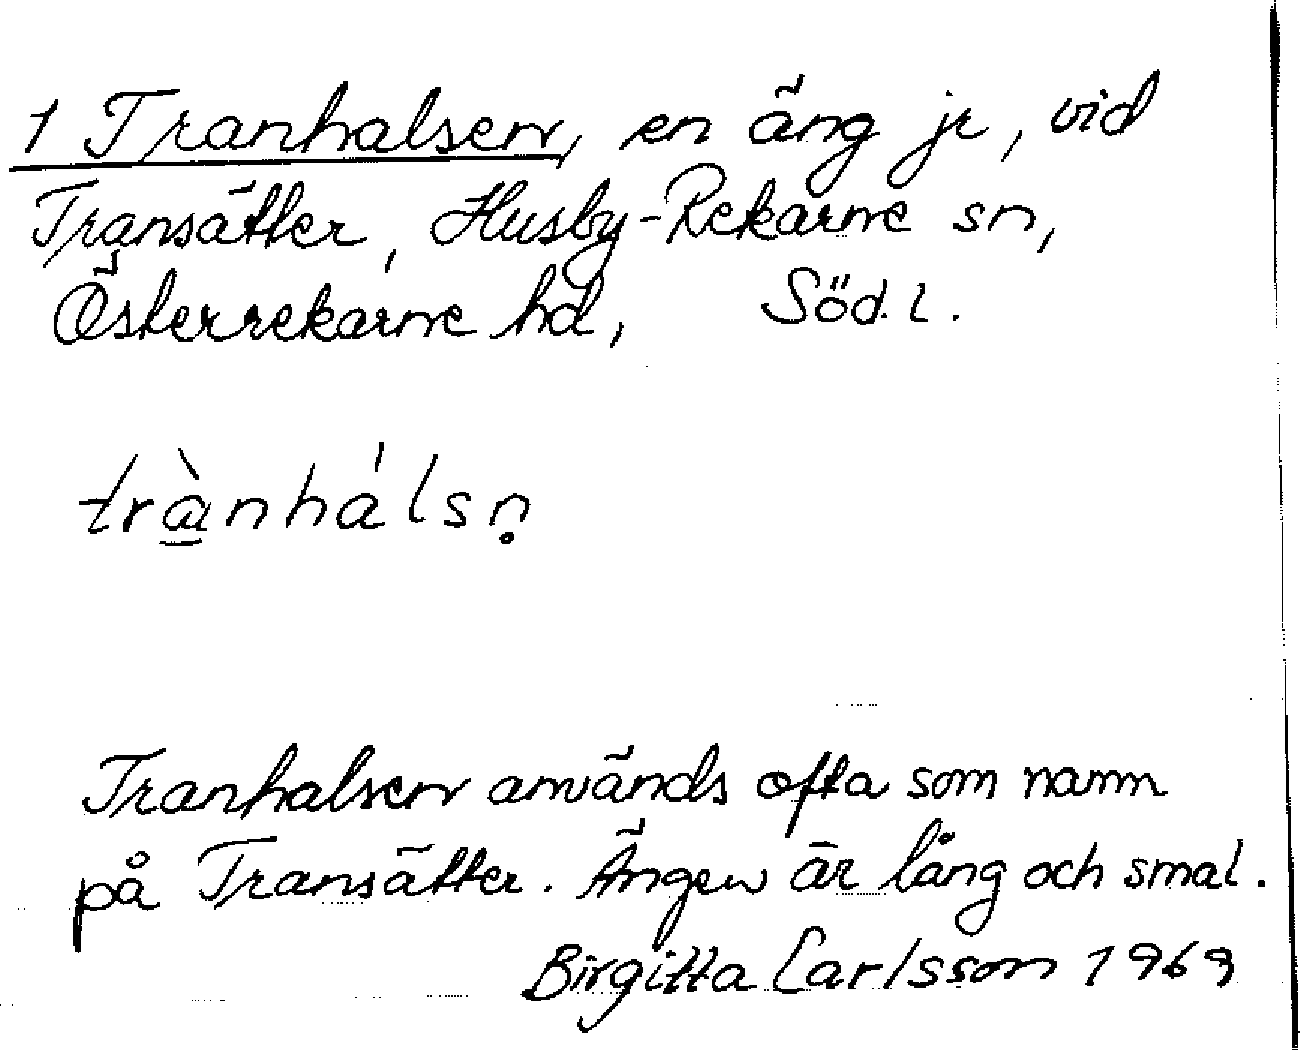 1 Tranhalsen, en äng jr, vid
Transätter, Husby-Rekarne sn,
Österrekarne hd, Söd. l.
trà̱nhálsn̥
Tranhalsen används ofta som namn
på Transätter. Ängen är lång och smal.
Birgitta Carlsson 1969